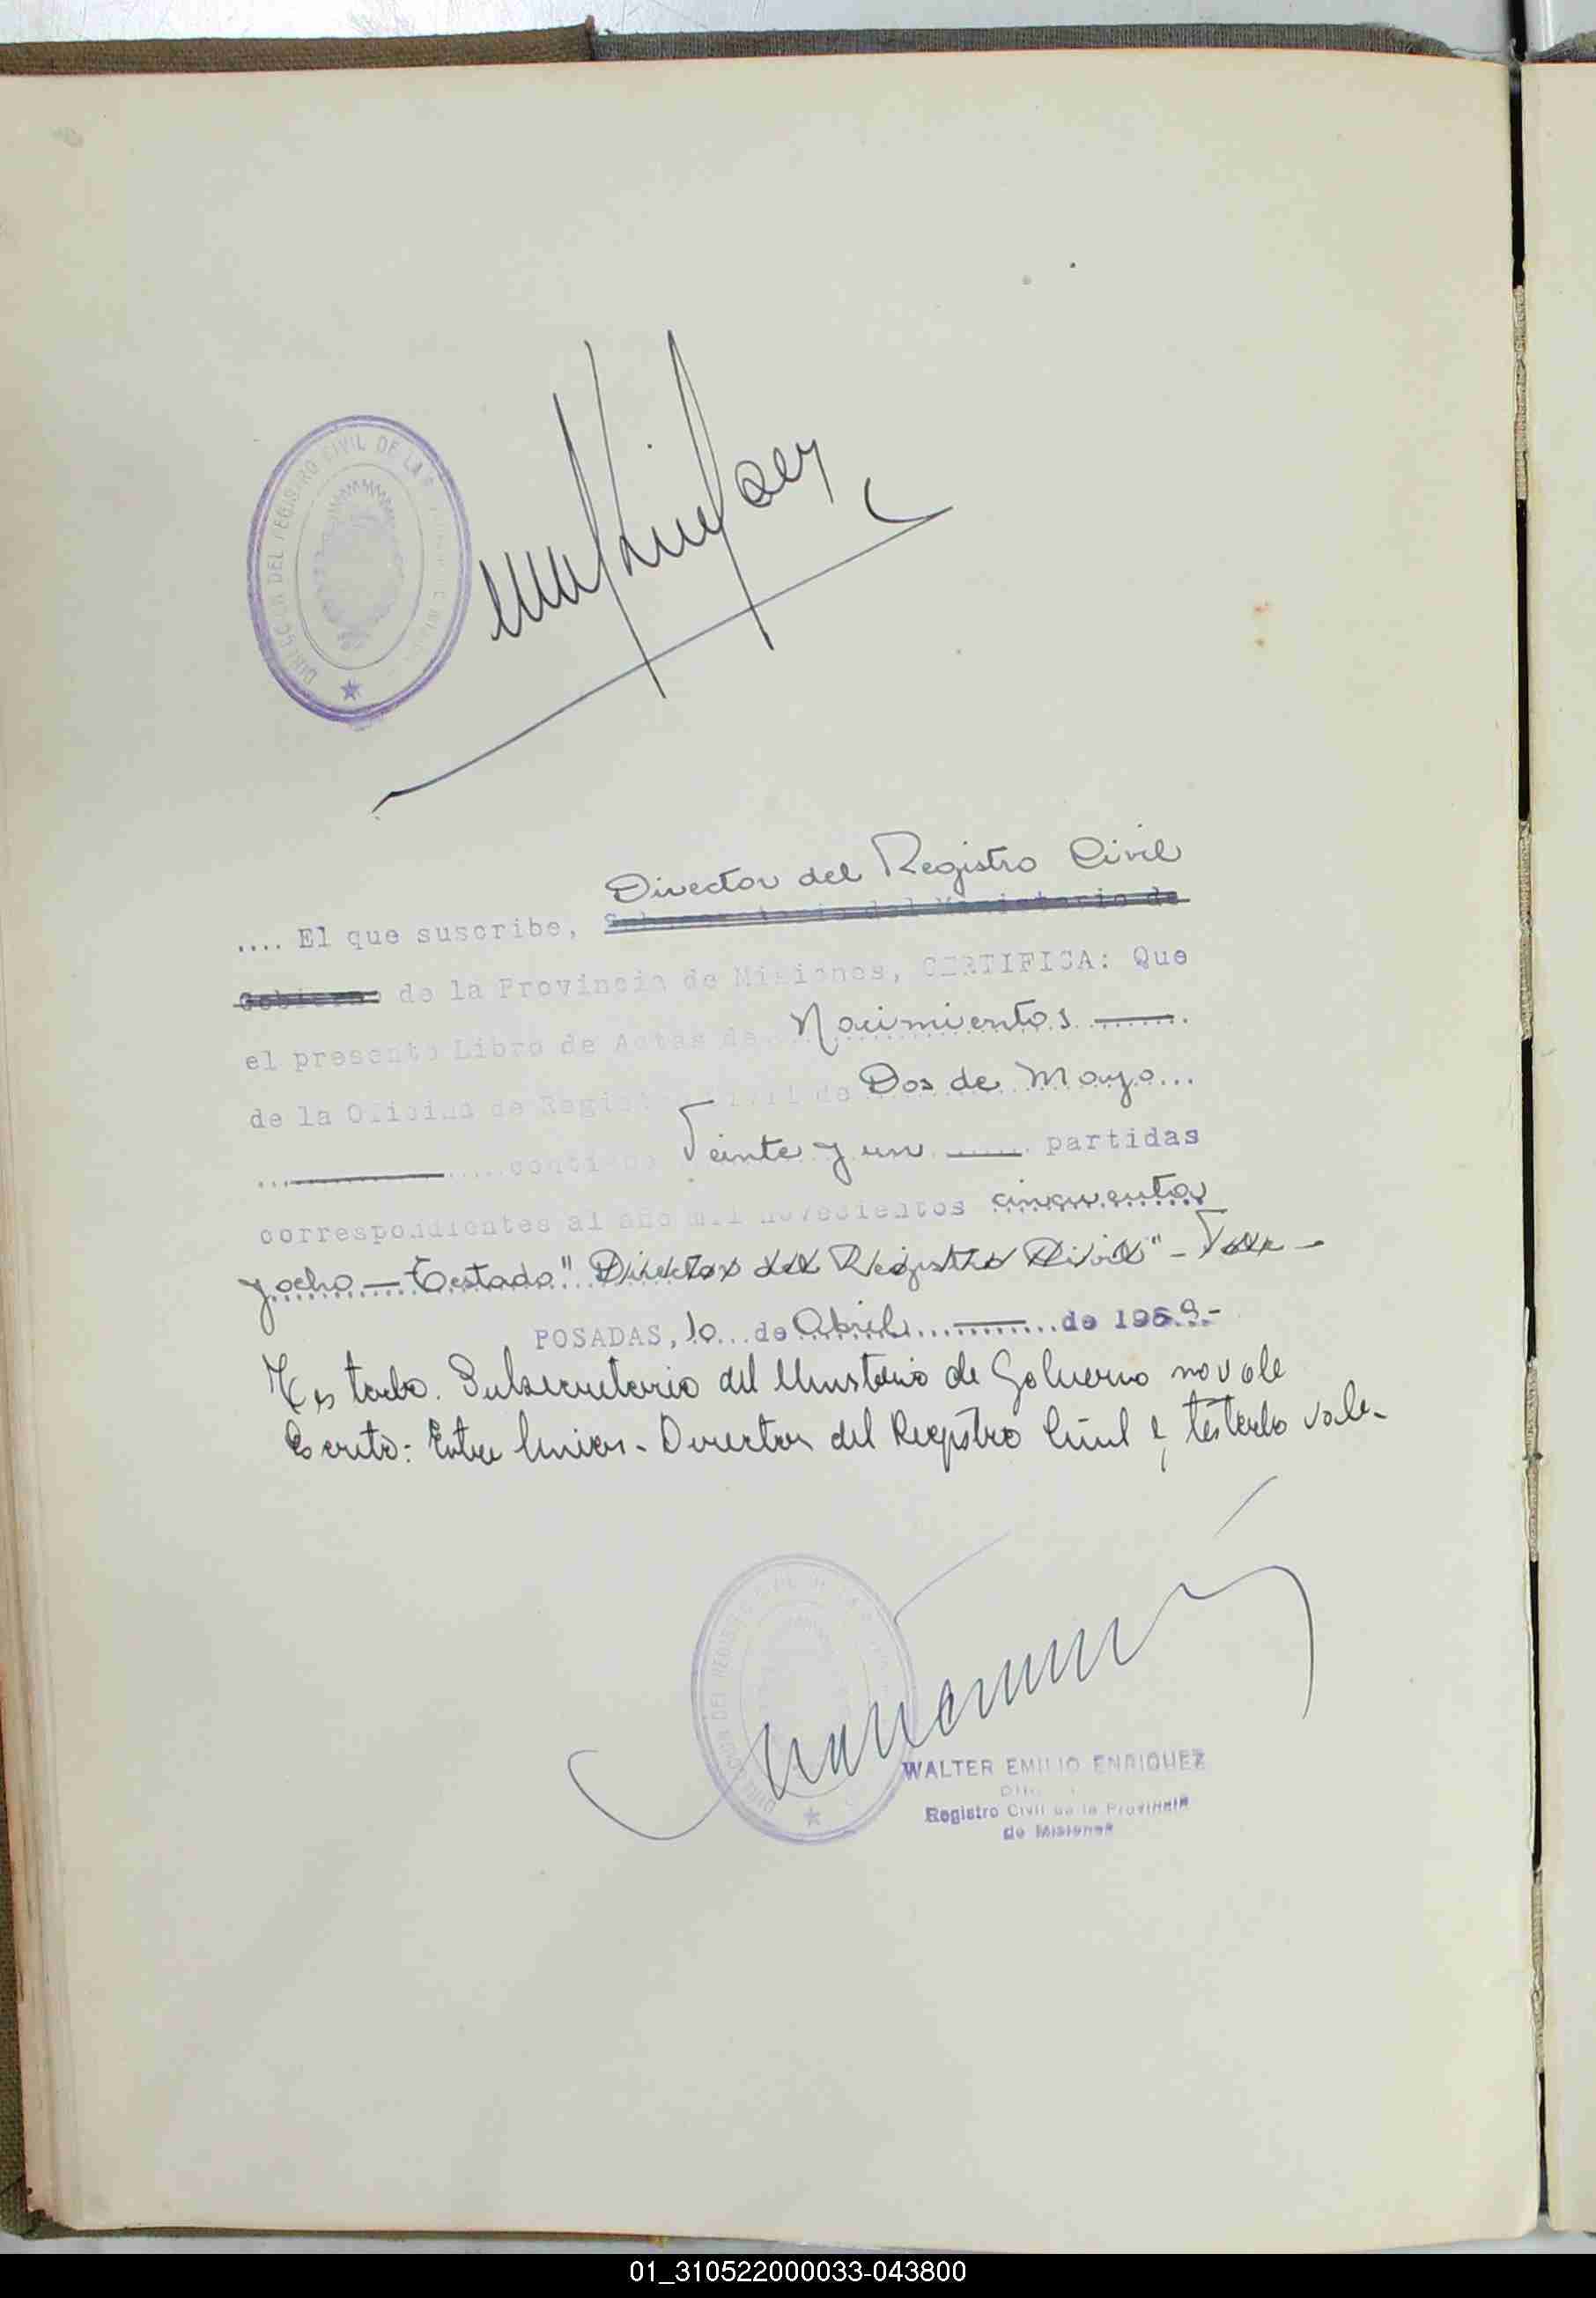 DIRECCION DEL REGISTRO CIVIL DE LAS
Director del Registro Civil
.... El que suscribe, Subsecretario del Ministerio de
Gobierno de la Provincia de Misiones, CERTIFICA: Que
el presente Libro de Actas de Nacimientos
de la Oficina de Registro Civil de Dos de Mayo...
contiene Veinte y un partidas
correspondientes al año mil novecientos cincuenta
y ocho — Testado "Director del Registro Civil" - Vale -
POSADAS, 10 de Abril de 1959.-
Testado. Subsecretario del Ministerio de Gobierno no vale
Escrito: Entre linias - Director del Registro Civil y testado vale-
DIRECCION DEL REGISTRO
WALTER EMILIO ENRIQUEZ
Registro Civil de la Provincia
de Misiones
01_310522000033-043800